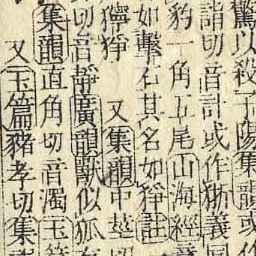 驚以殺子陽集韻或作
詣切音計或作狾義同
豹一角五尾山海經章
如擊石其名如猙註
獰猙 又集韻中莖切
切音靜廣韻獸似狐有
集韻直角切音濁玉篇
又玉篇豬孝切集韻